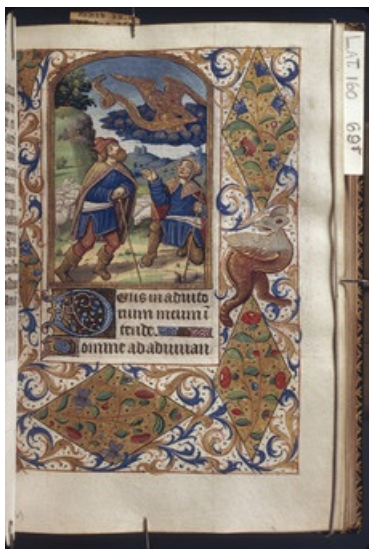 LAT 160 69r
Deus in adiuto
rium meum ī
tende.
Domine ad adiuuan